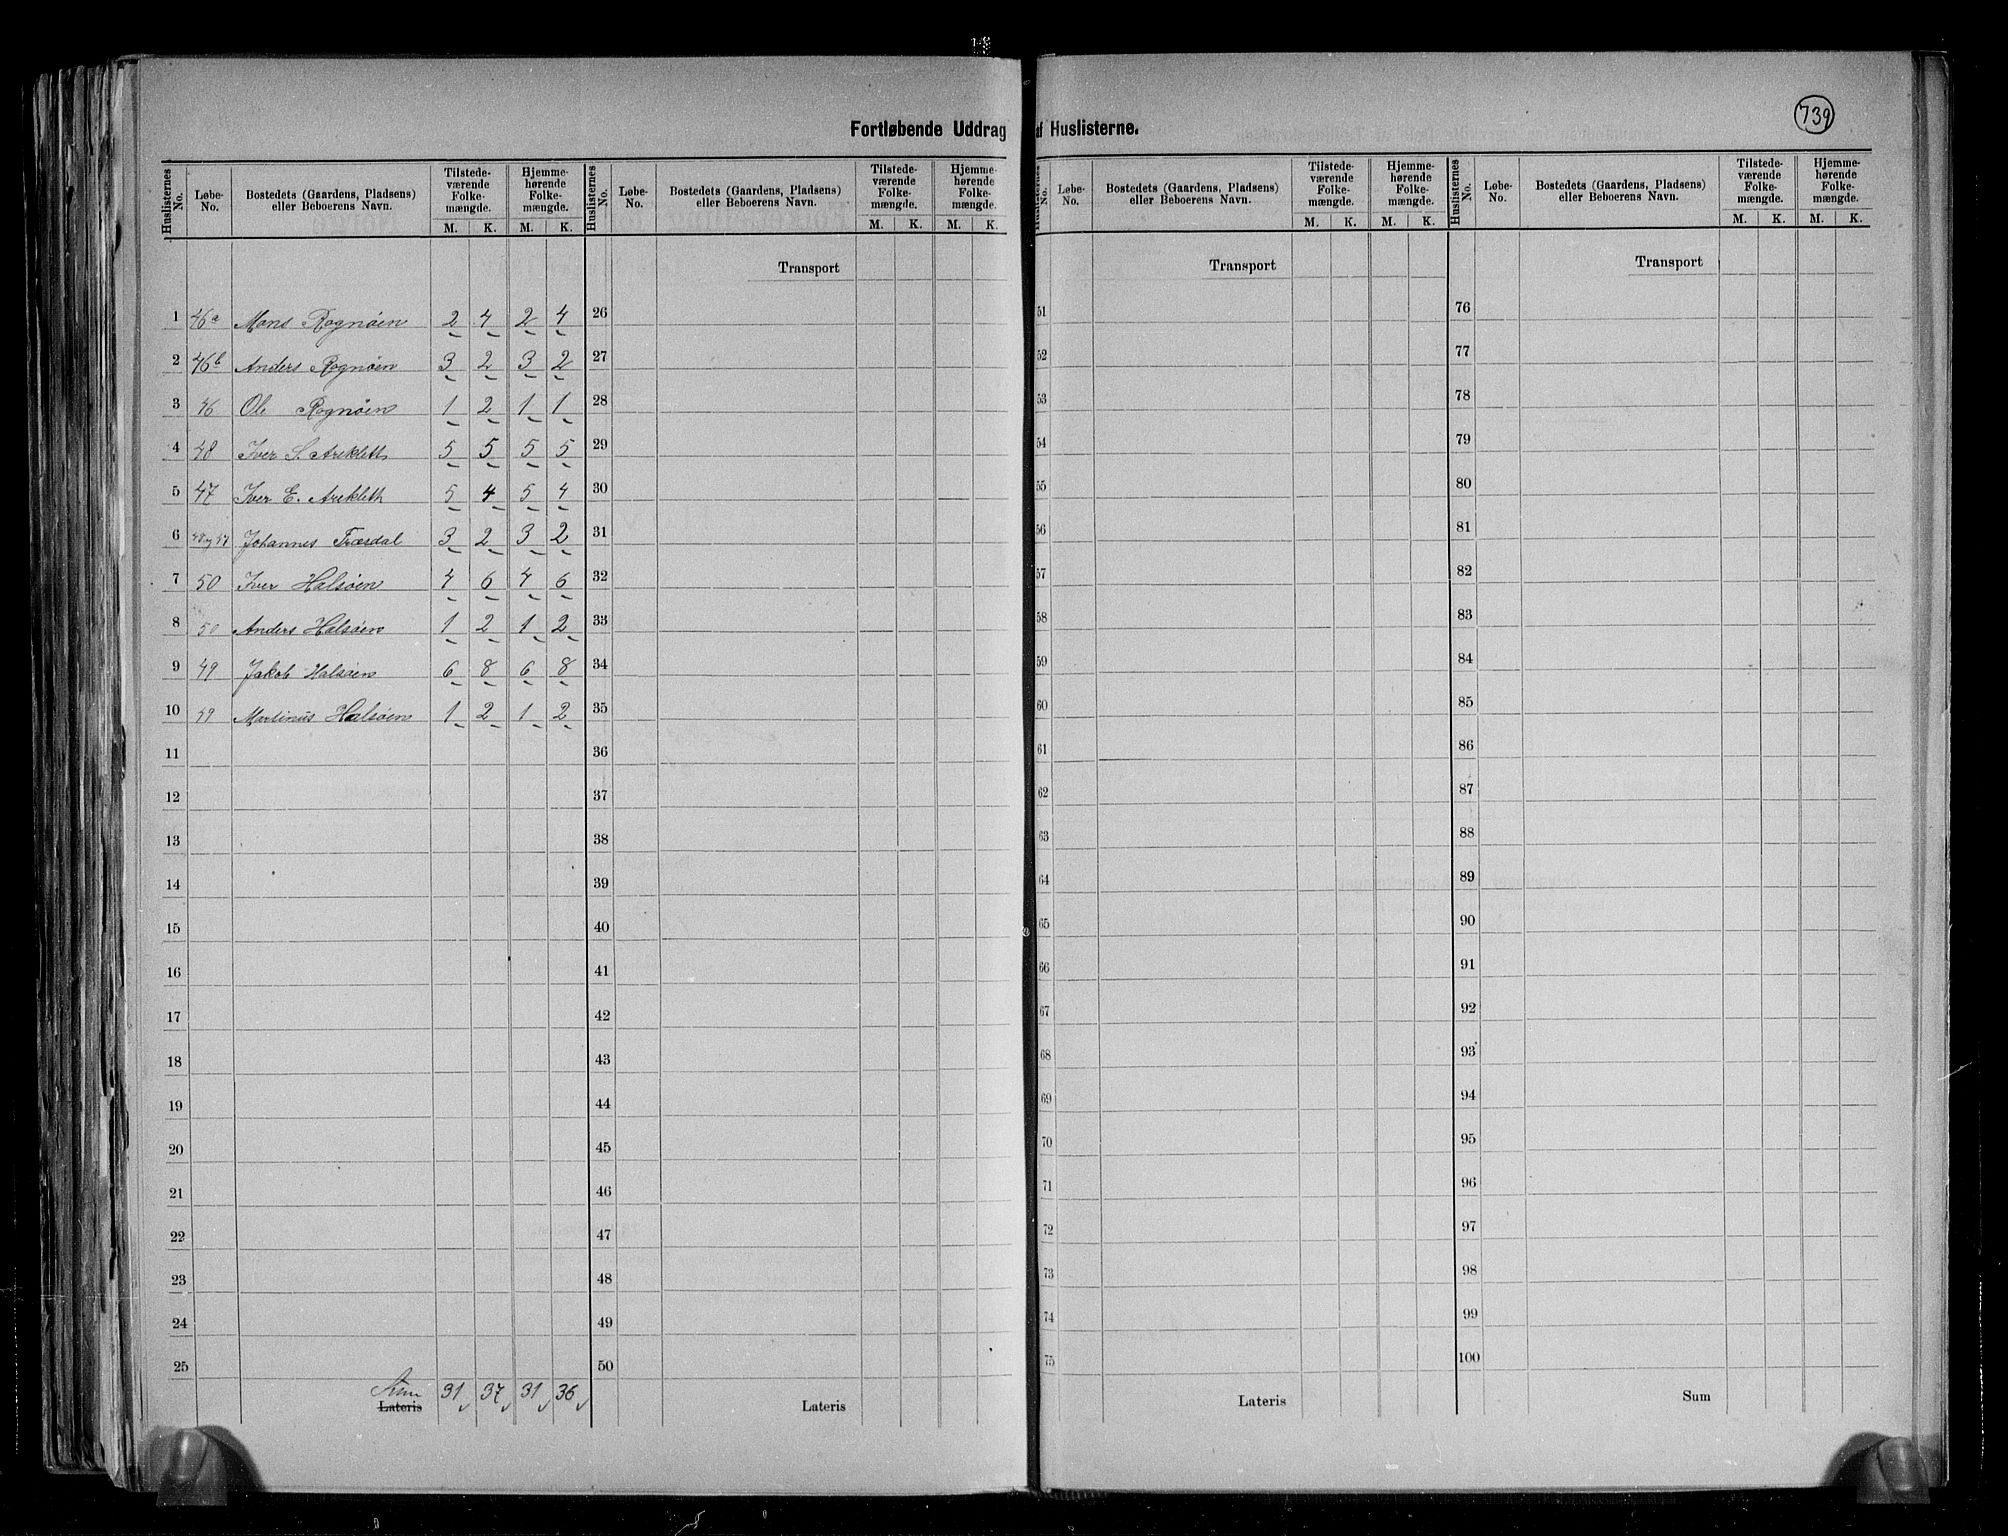 739
Fortløbende Uddrag af Huslisterne.
Huslisternes No. Løbe-No. Bostedets (Gaardens, Pladsens) eller Beboerens Navn. Tilstedeværende Folkemængde. M. K. Hjemmehørende Folkemængde. M. K.
Huslisternes No. Løbe-No. Bostedets (Gaardens, Pladsens) eller Beboerens Navn. Tilstedeværende Folkemængde. M. K. Hjemmehørende Folkemængde. M. K.
Huslisternes No. Løbe-No. Bostedets (Gaardens, Pladsens) eller Beboerens Navn. Tilstedeværende Folkemængde. M. K. Hjemmehørende Folkemængde. M. K.
Huslisternes No. Løbe-No. Bostedets (Gaardens, Pladsens) eller Beboerens Navn. Tilstedeværende Folkemængde. M. K. Hjemmehørende Folkemængde. M. K.
Transport Transport Transport
1 46a Mons Rognøen 2 4 2 4 26 51 76
2 46b Anders Rognøen 3 2 3 2 27 52 77
3 46 Ole Rognøen 1 2 1 1 28 53 78
4 48 Iver S. Areklett 5 5 5 5 29 54 79
5 47 Iver E. Arekleth 5 4 5 4 30 55 80
6 Johannes Træsdal 3 2 3 2 31 56 81
7 50 Iver Halsøen 4 6 4 6 32 57 82
8 50 Anders Halsøen 1 2 1 2 33 58 83
9 49 Jakob Halsøen 6 8 6 8 34 59 84
10 49 Martinus Halsøen 1 2 1 2 35 60 85
11 36 61 86
12 37 62 87
13 38 63 88
14 39 64 89
15 40 65 90
16 41 66 91
17 42 67 92
18 43 68 93
19 44 69 94
20 45 70 95
21 46 71 96
22 47 72 97
23 48 73 98
24 49 74 99
25 50 75 100
Sum 31 37 31 36
Lateris Lateris Lateris Sum